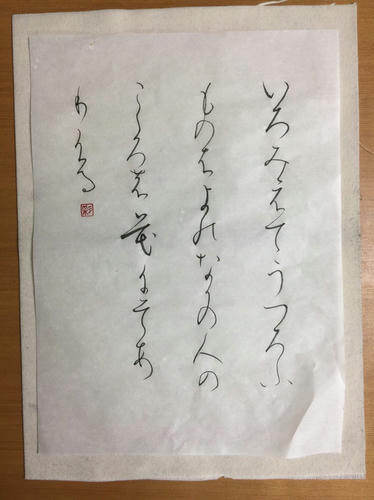 いろみえてうつろふ
ものはよのなかの人の
こころの花にそあ
りける
彩